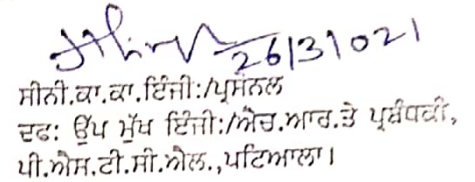 26/3/2021
ਸੀਨੀ.ਕਾ.ਕਾ.ਇੰਜੀ:/ਪ੍ਰਸੋਨਲ
ਦਫ: ਉੱਪ ਮੁੱਖ ਇੰਜੀ:/ਐਚ.ਆਰ.ਤੇ ਪ੍ਰਬੰਧਕੀ,
ਪੀ.ਐਸ.ਟੀ.ਸੀ.ਐਲ.,ਪਟਿਆਲਾ।